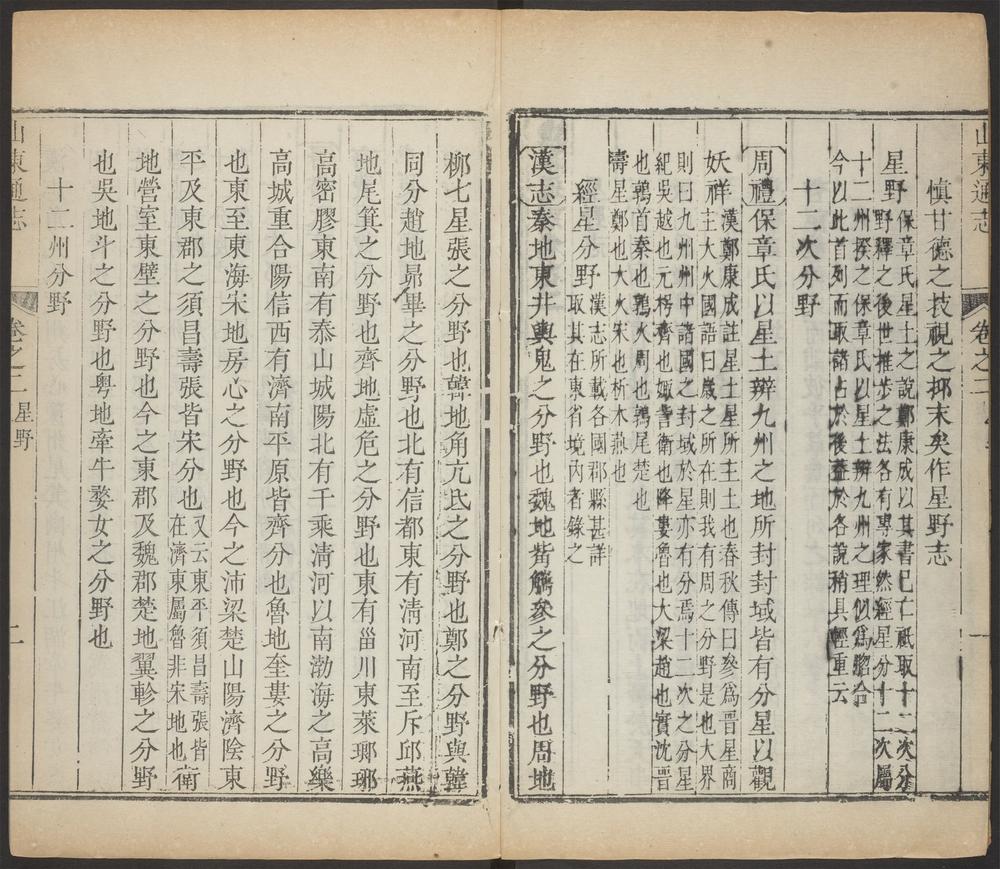 山東通志
卷之二
一
慎甘德之技視之抑末矣作星野志
星野
保章氏星土之說鄭康成以其書已亡祇取十二次分
野釋之後世推步之法各有專家然經星分十二次屬
十二州揆之保章氏以星土辨九州之理似為脗合
今以此首列而取諸占於後葢於各說稍具輕重云
十二次分野
周禮保章氏以星土辯九州之地所封封域皆有分星以觀
妖祥
漢鄭康成註星土星所主土也春秋傳曰參為晋星商
主大火國語曰歲之所在則我有周之分野是也大界
則曰九州州中諸國之封域於星亦有分焉十二次之分星
紀吳越也元枵齊也娵訾衛也降婁魯也大梁趙也實沈晋
也鶉首秦也鶉火周也鶉尾楚也
壽星鄭也大火宋也析木燕也
經星分野
漢志所載各國郡縣甚詳
取其在東省境內者錄之
漢志秦地東井輿鬼之分野也魏地觜觿參之分野也周地
柳七星張之分野也韓地角亢氐之分野也鄭之分野與韓
同分趙地昴畢之分野也北有信都東有清河南至斥邱燕
地尾箕之分野也齊地虛危之分野也東有甾川東萊瑯琊
高密膠東南有泰山城陽北有千乘清河以南渤海之高樂
高城重合陽信西有濟南平原皆齊分也魯地奎婁之分野
也東至東海宋地房心之分野也今之沛梁楚山陽濟陰東
平及東郡之須昌壽張皆宋分也
又云東平須昌壽張皆
在濟東屬魯非宋地也
衛
地營室東壁之分野也今之東郡及魏郡楚地翼軫之分野
也吳地斗之分野也粵地牽牛婺女之分野也
十二州分野
山東通志
卷之二
星野
二